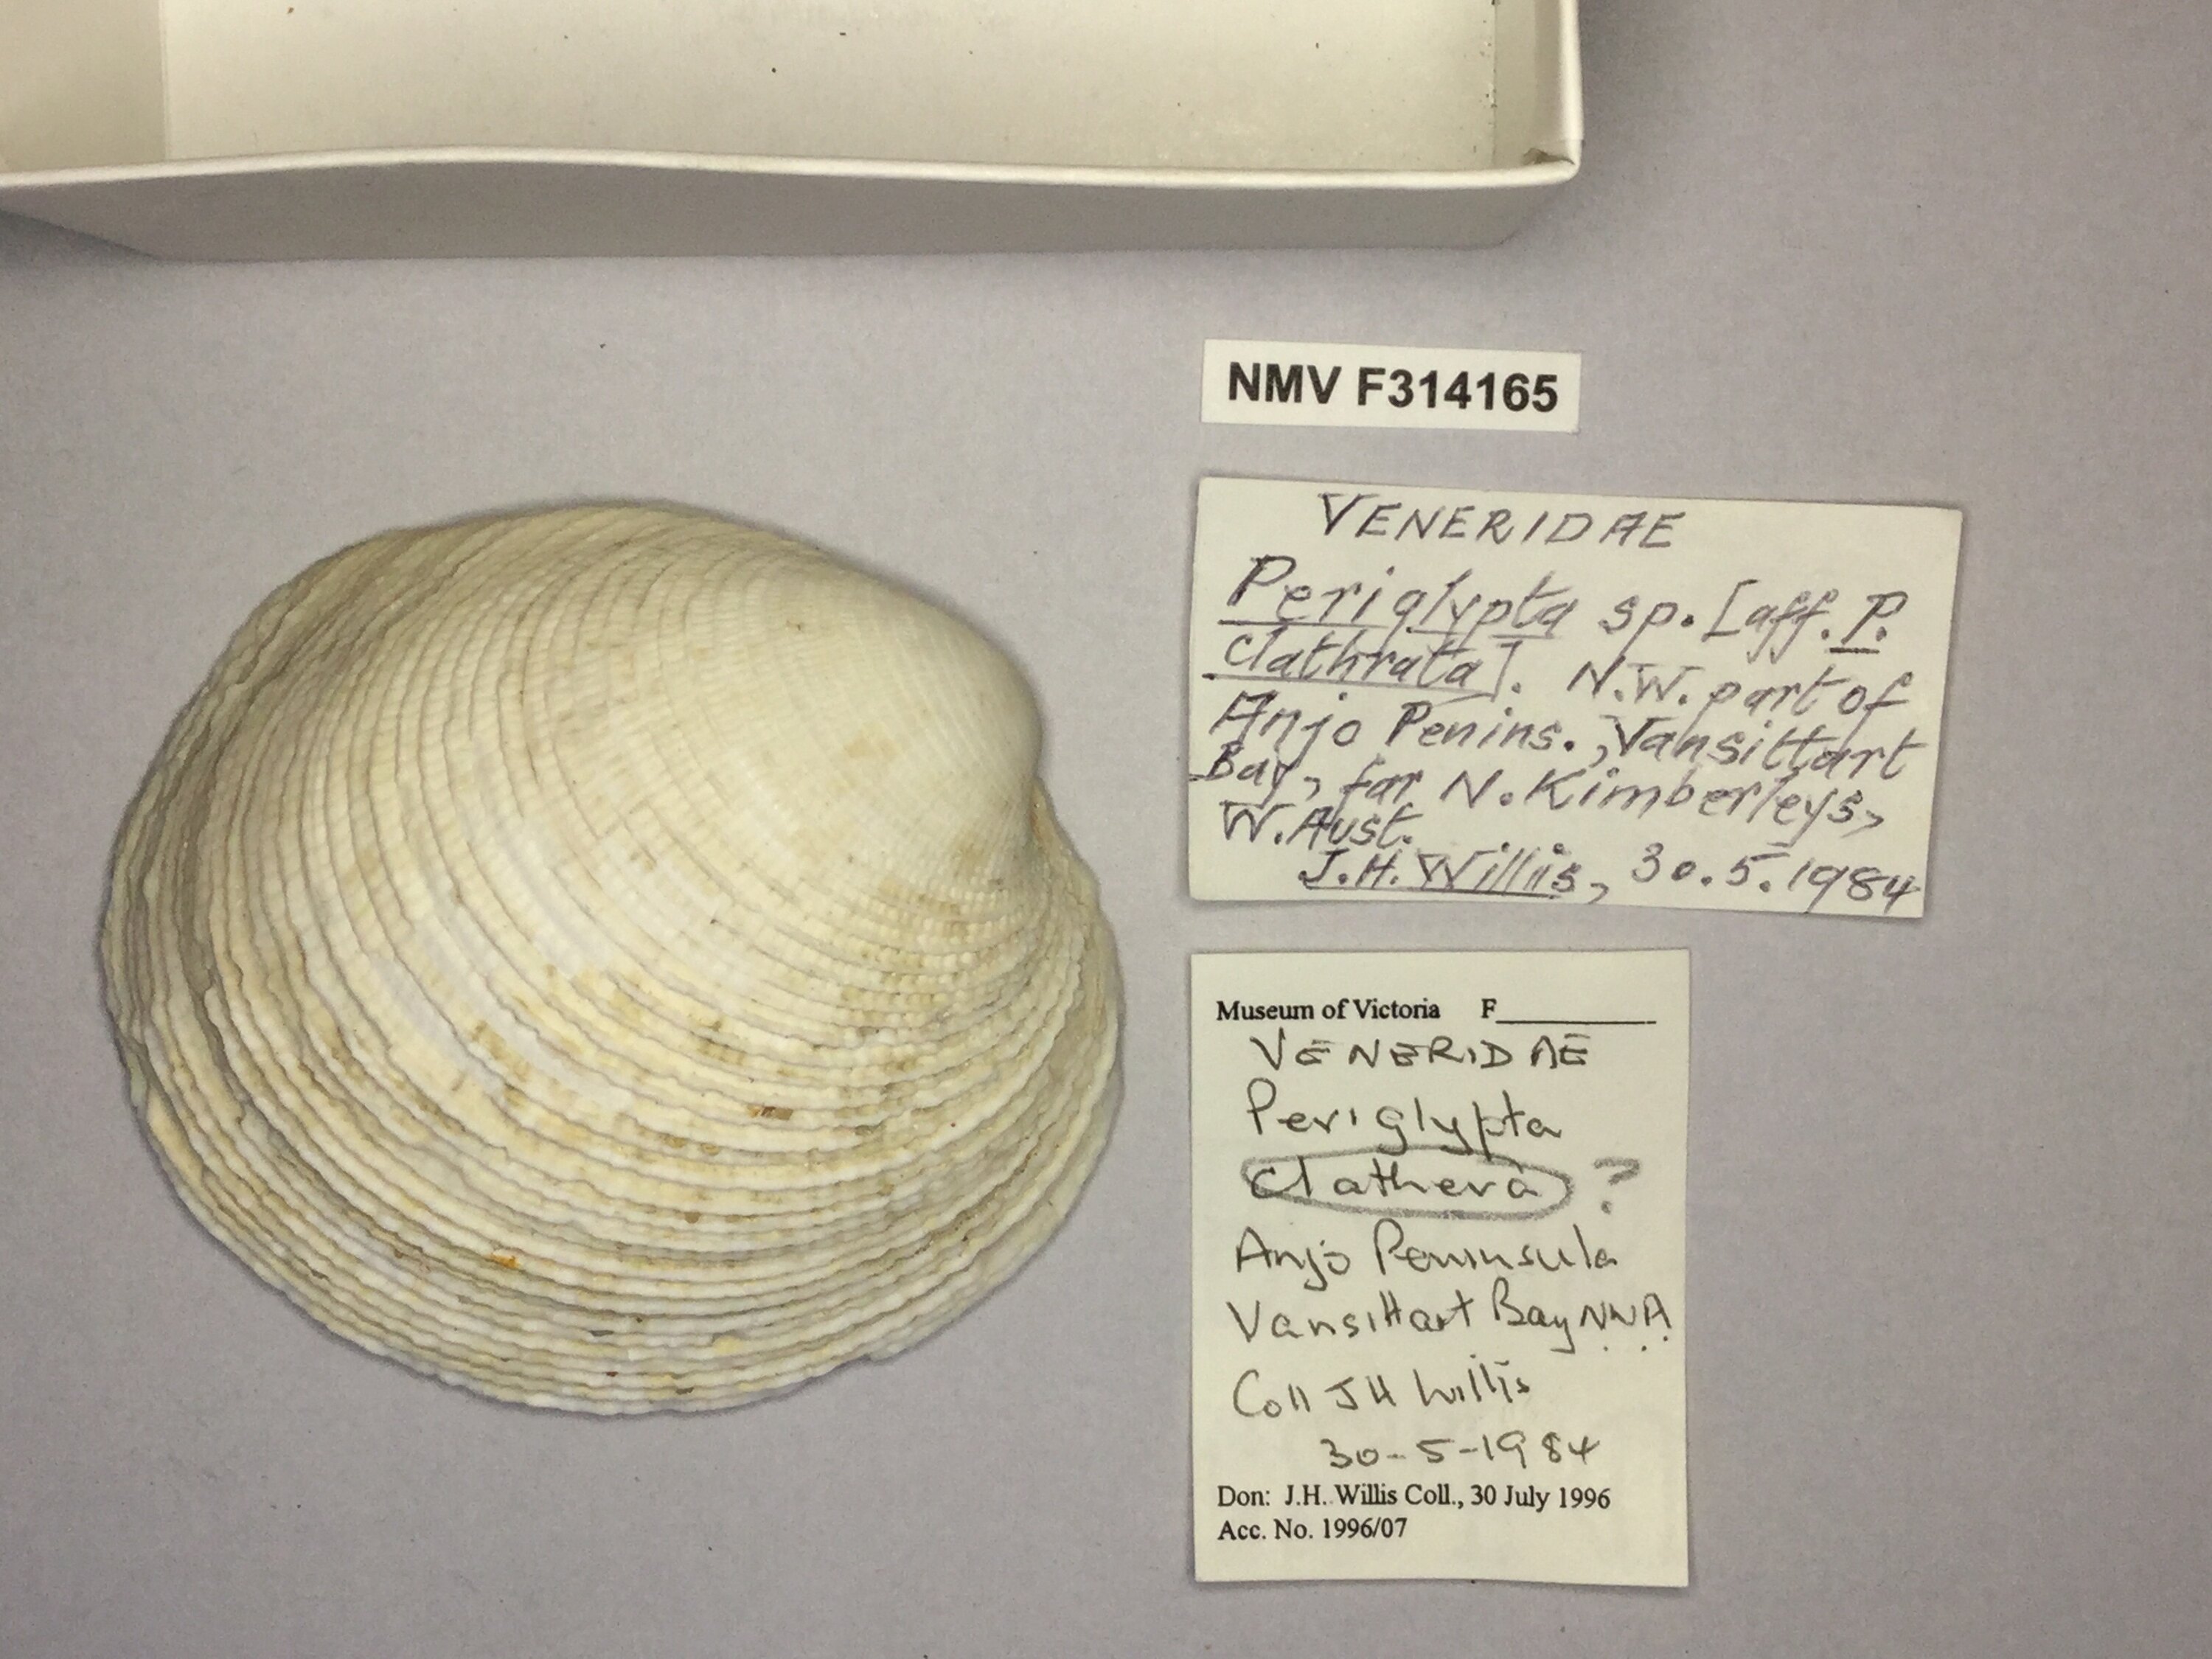 NMV F314165
VENERIDAE
Periglypta sp. [aff. P.
clathrata]. N.W. part of
Anjo Penins., Vansittart
Bay, far N. Kimberleys,
W. Aust.
J.H. Willis, 30.5.1984
Museum of Victoria F
VENERIDAE
Periglypta
clathera ?
Anjo Peninsula
Vansittart Bay NWA.
Coll JH Willis
30-5-1984
Don: J.H. Willis Coll., 30 July 1996
Acc. No. 1996/07